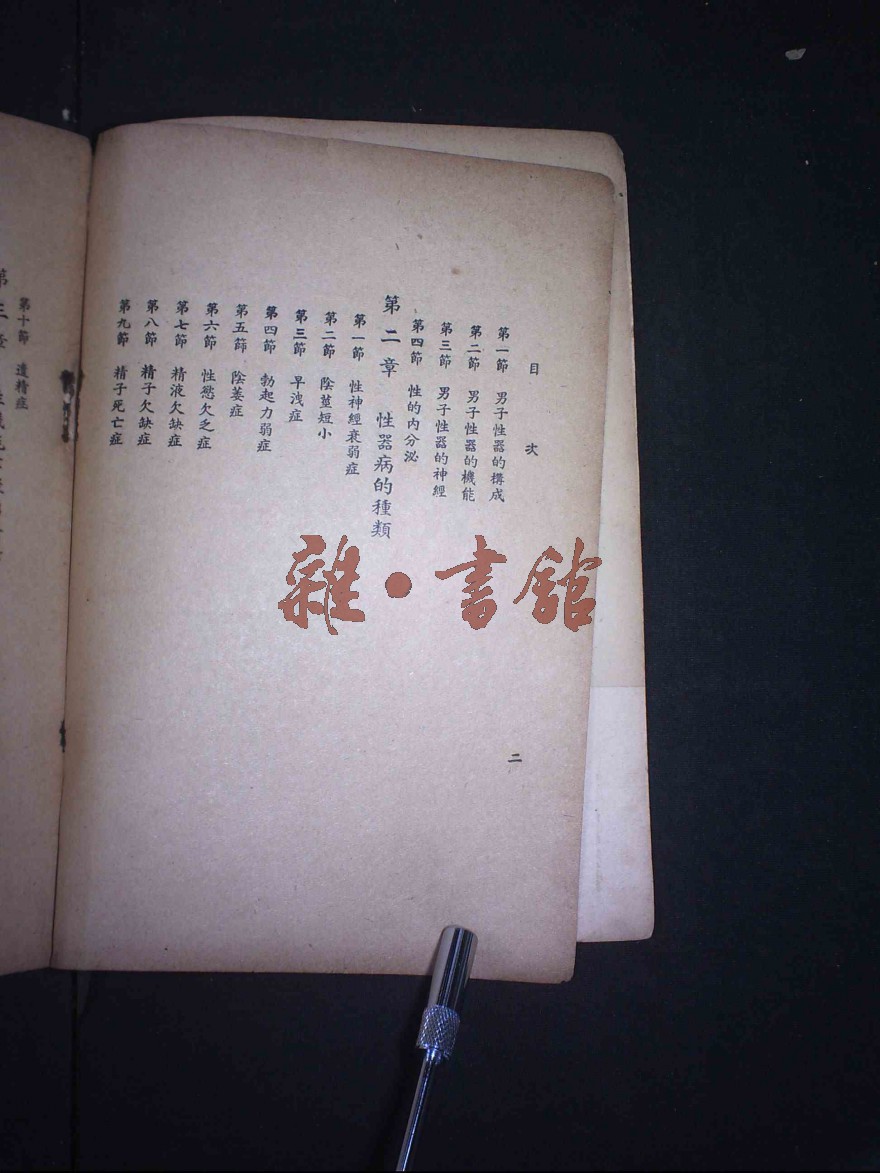 目次
第一節 男子性器的構成
第二節 男子性器的機能
第三節 男子性器的神經
第四節 性的内分泌
第二章 性器病的種類
第一節 性神經衰弱症
第二節 陰莖短小
第三節 早洩症
第四節 勃起力弱症
第五篩 陰萎症
第六節 性慾欠乏症
第七節 精液欠缺症
第八節 精子欠缺症
第九節 精子死亡症
二
第十節 遺精症
第三章
雜·書館